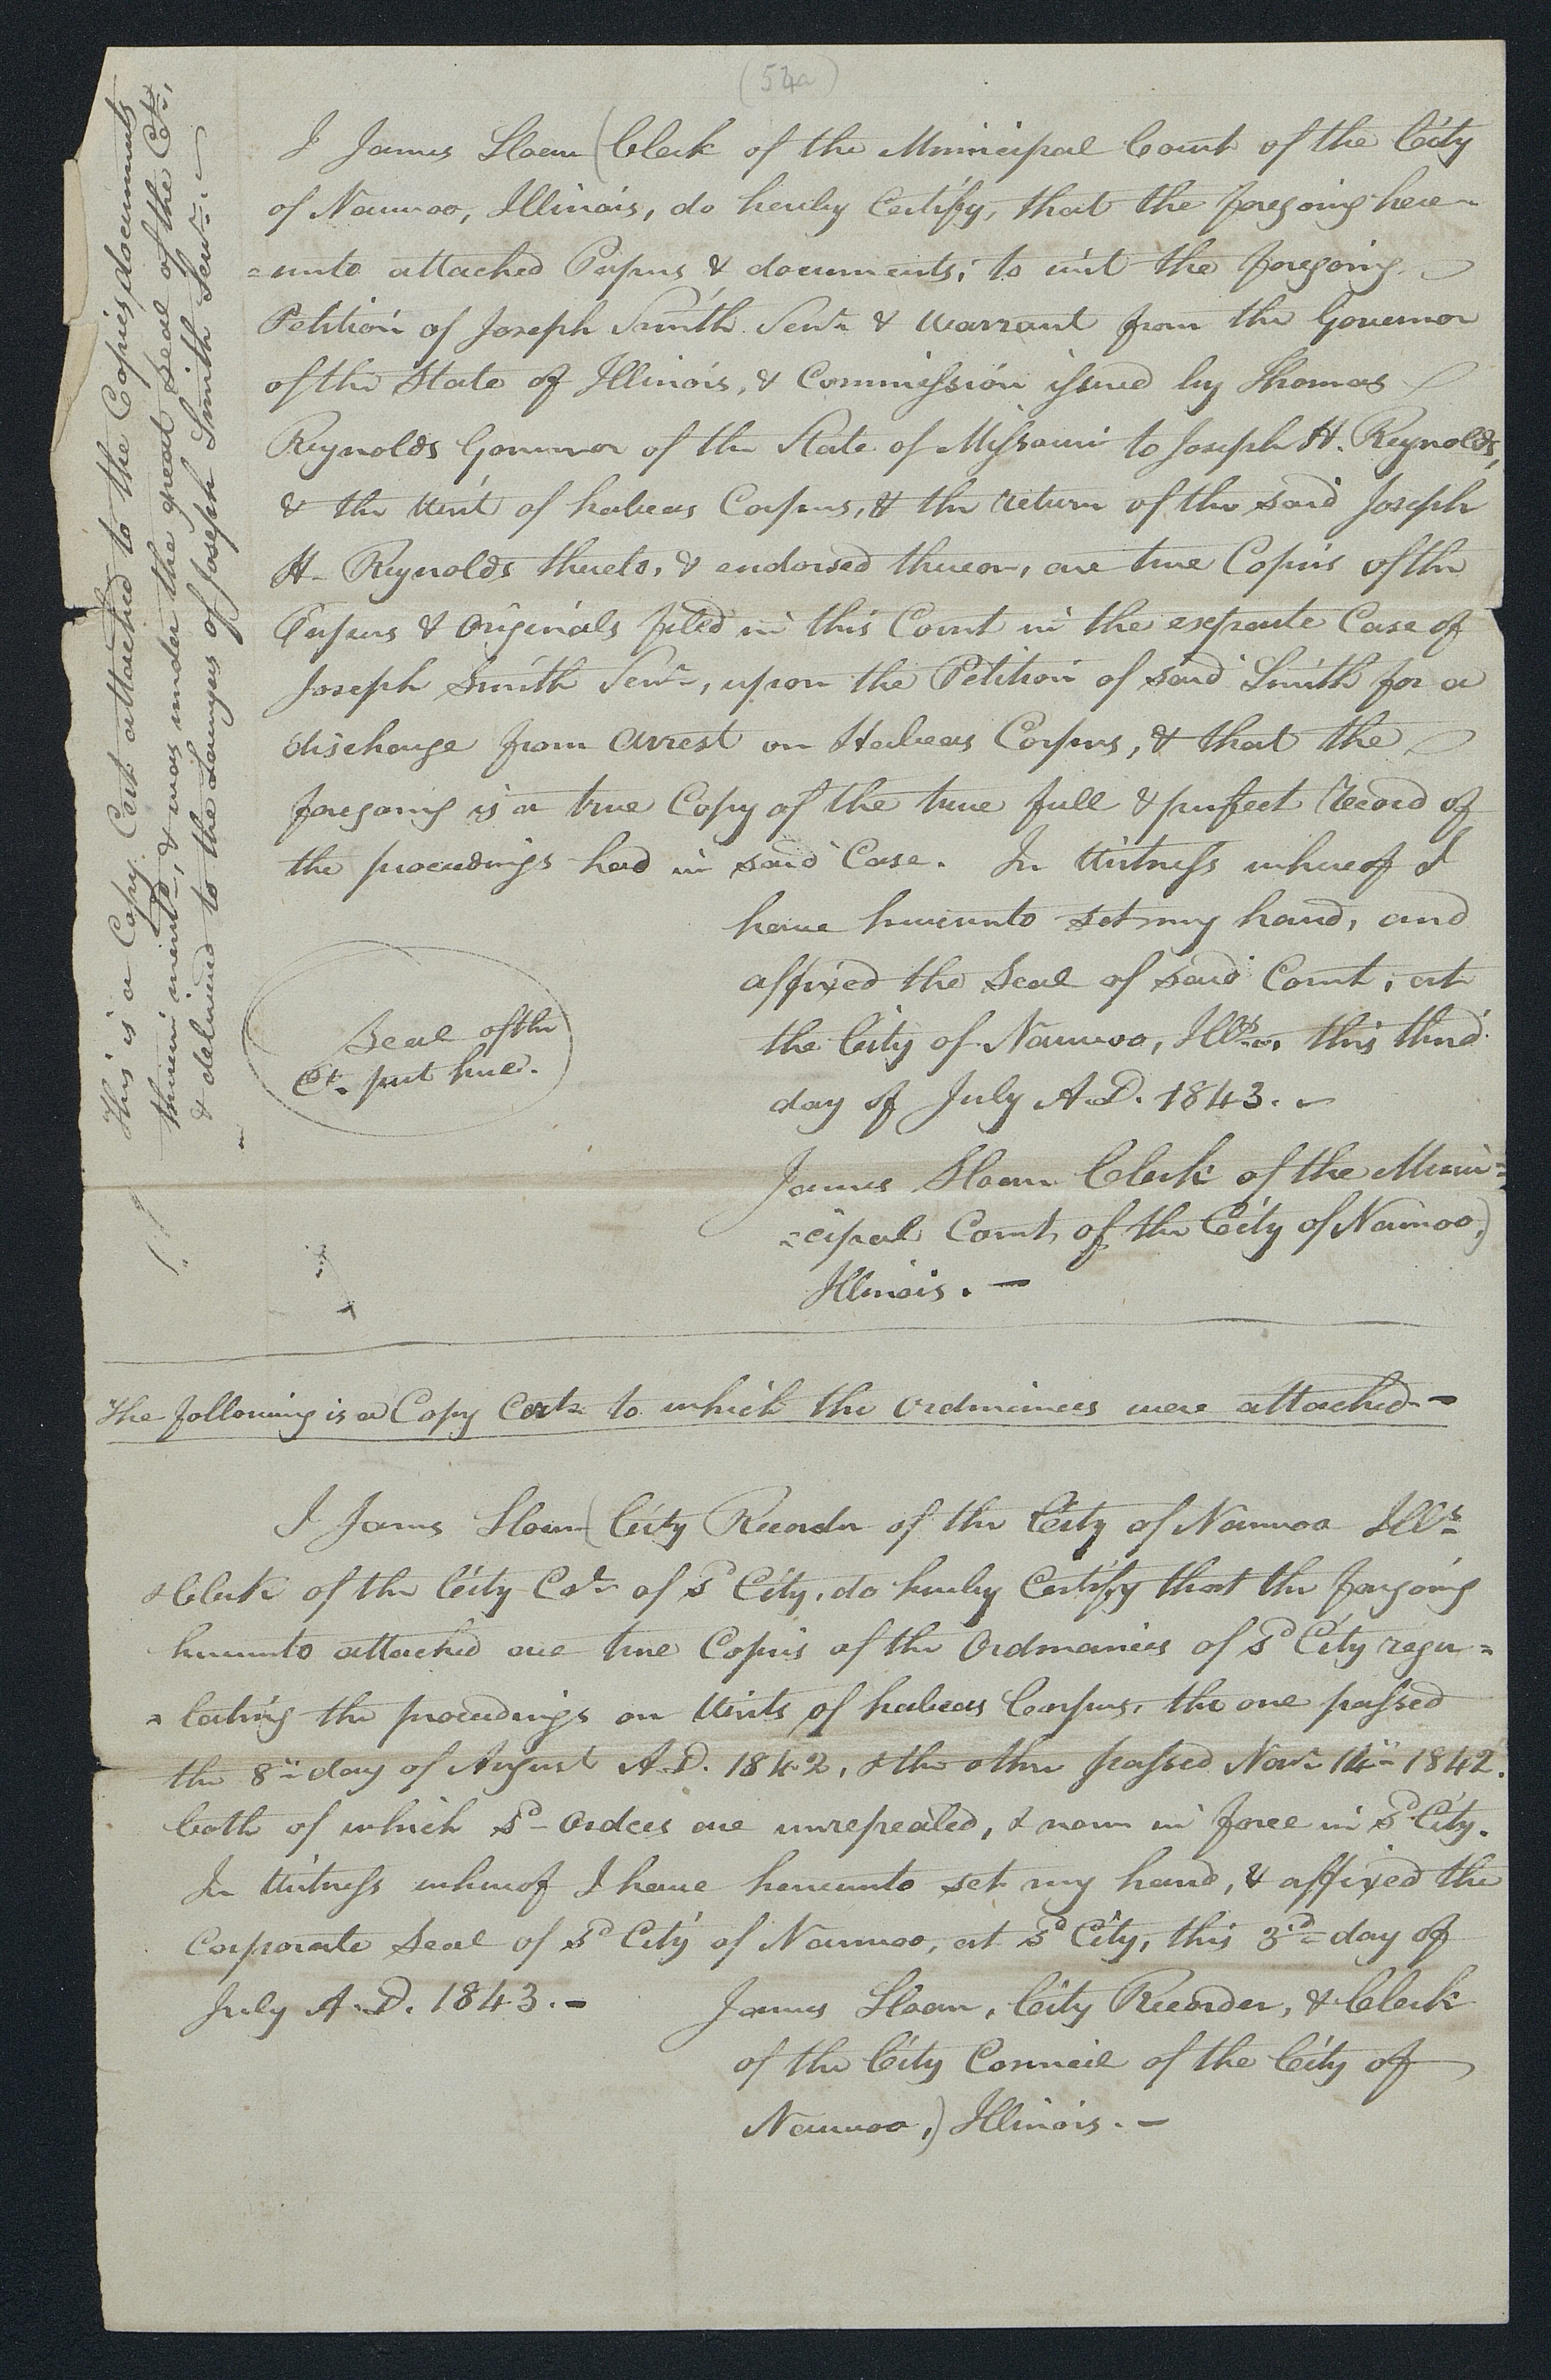 (54a)
I James Sloan (Clerk of the Municipal Court of the City
of Nauvoo, Illinois, do hereby Certify, that the foregoing here-
=unto attached Papers & documents; to wit the foregoing
Petition of Joseph Smith Senr. & Warrant from the Governor
of the State of Illinois, & Commission issued by Thomas
Reynolds Governor of the State of Missouri to Joseph H. Reynolds,
& the Writ of habeas Corpus, & the return of the said Joseph
H. Reynolds thereto, & endorsed thereon, are true Copies of the
Papers & Originals filed in this Court in the exparte Case of
Joseph Smith Senr., upon the Petition of said Smith for a
discharge from arrest on Habeas Corpus, & that the
foregoing is a true Copy of the true full & perfect Record of
the proceedings had in said Case. In Witness whereof I
have hereunto set my hand, and
affixed the Seal of said Court, at
the City of Nauvoo, Ills., this third
day of July A.D. 1843.
Seal of the
Ct. put here.
James Sloan Clerk of the Muni=
=cipal Court, of the City of Nauvoo,)
Illinois. —
This is a Copy Cert. attached to the Copies documents
therein mentd., & was under the great Seal of the Ct.,
& delivered to the Lawyers of Joseph Smith Senr. —
The following is a Copy Cert. to which the Ordinances were attached.—
I James Sloan (City Recorder of the City of Nauvoo Ills.
& Clerk of the City Col. of sd. City, do hereby Certify that the foregoing
hereunto attached are true Copies of the Ordinances of sd. City regu=
=lating the proceedings on Writs of habeas Corpus, the one passed
the 8th day of August A.D. 1842, & the other passed Novr. 14th 1842.
both of which sd. Ordces are unrepealed, & now in force in sd. City.
In Witness whereof I have hereunto set my hand, & affixed the
Corporate Seal of sd. City of Nauvoo, at sd. City, this 3rd. day of
July A.D. 1843.—
James Sloan, City Recorder, & Clerk
of the City Council of the City of
Nauvoo,) Illinois. —